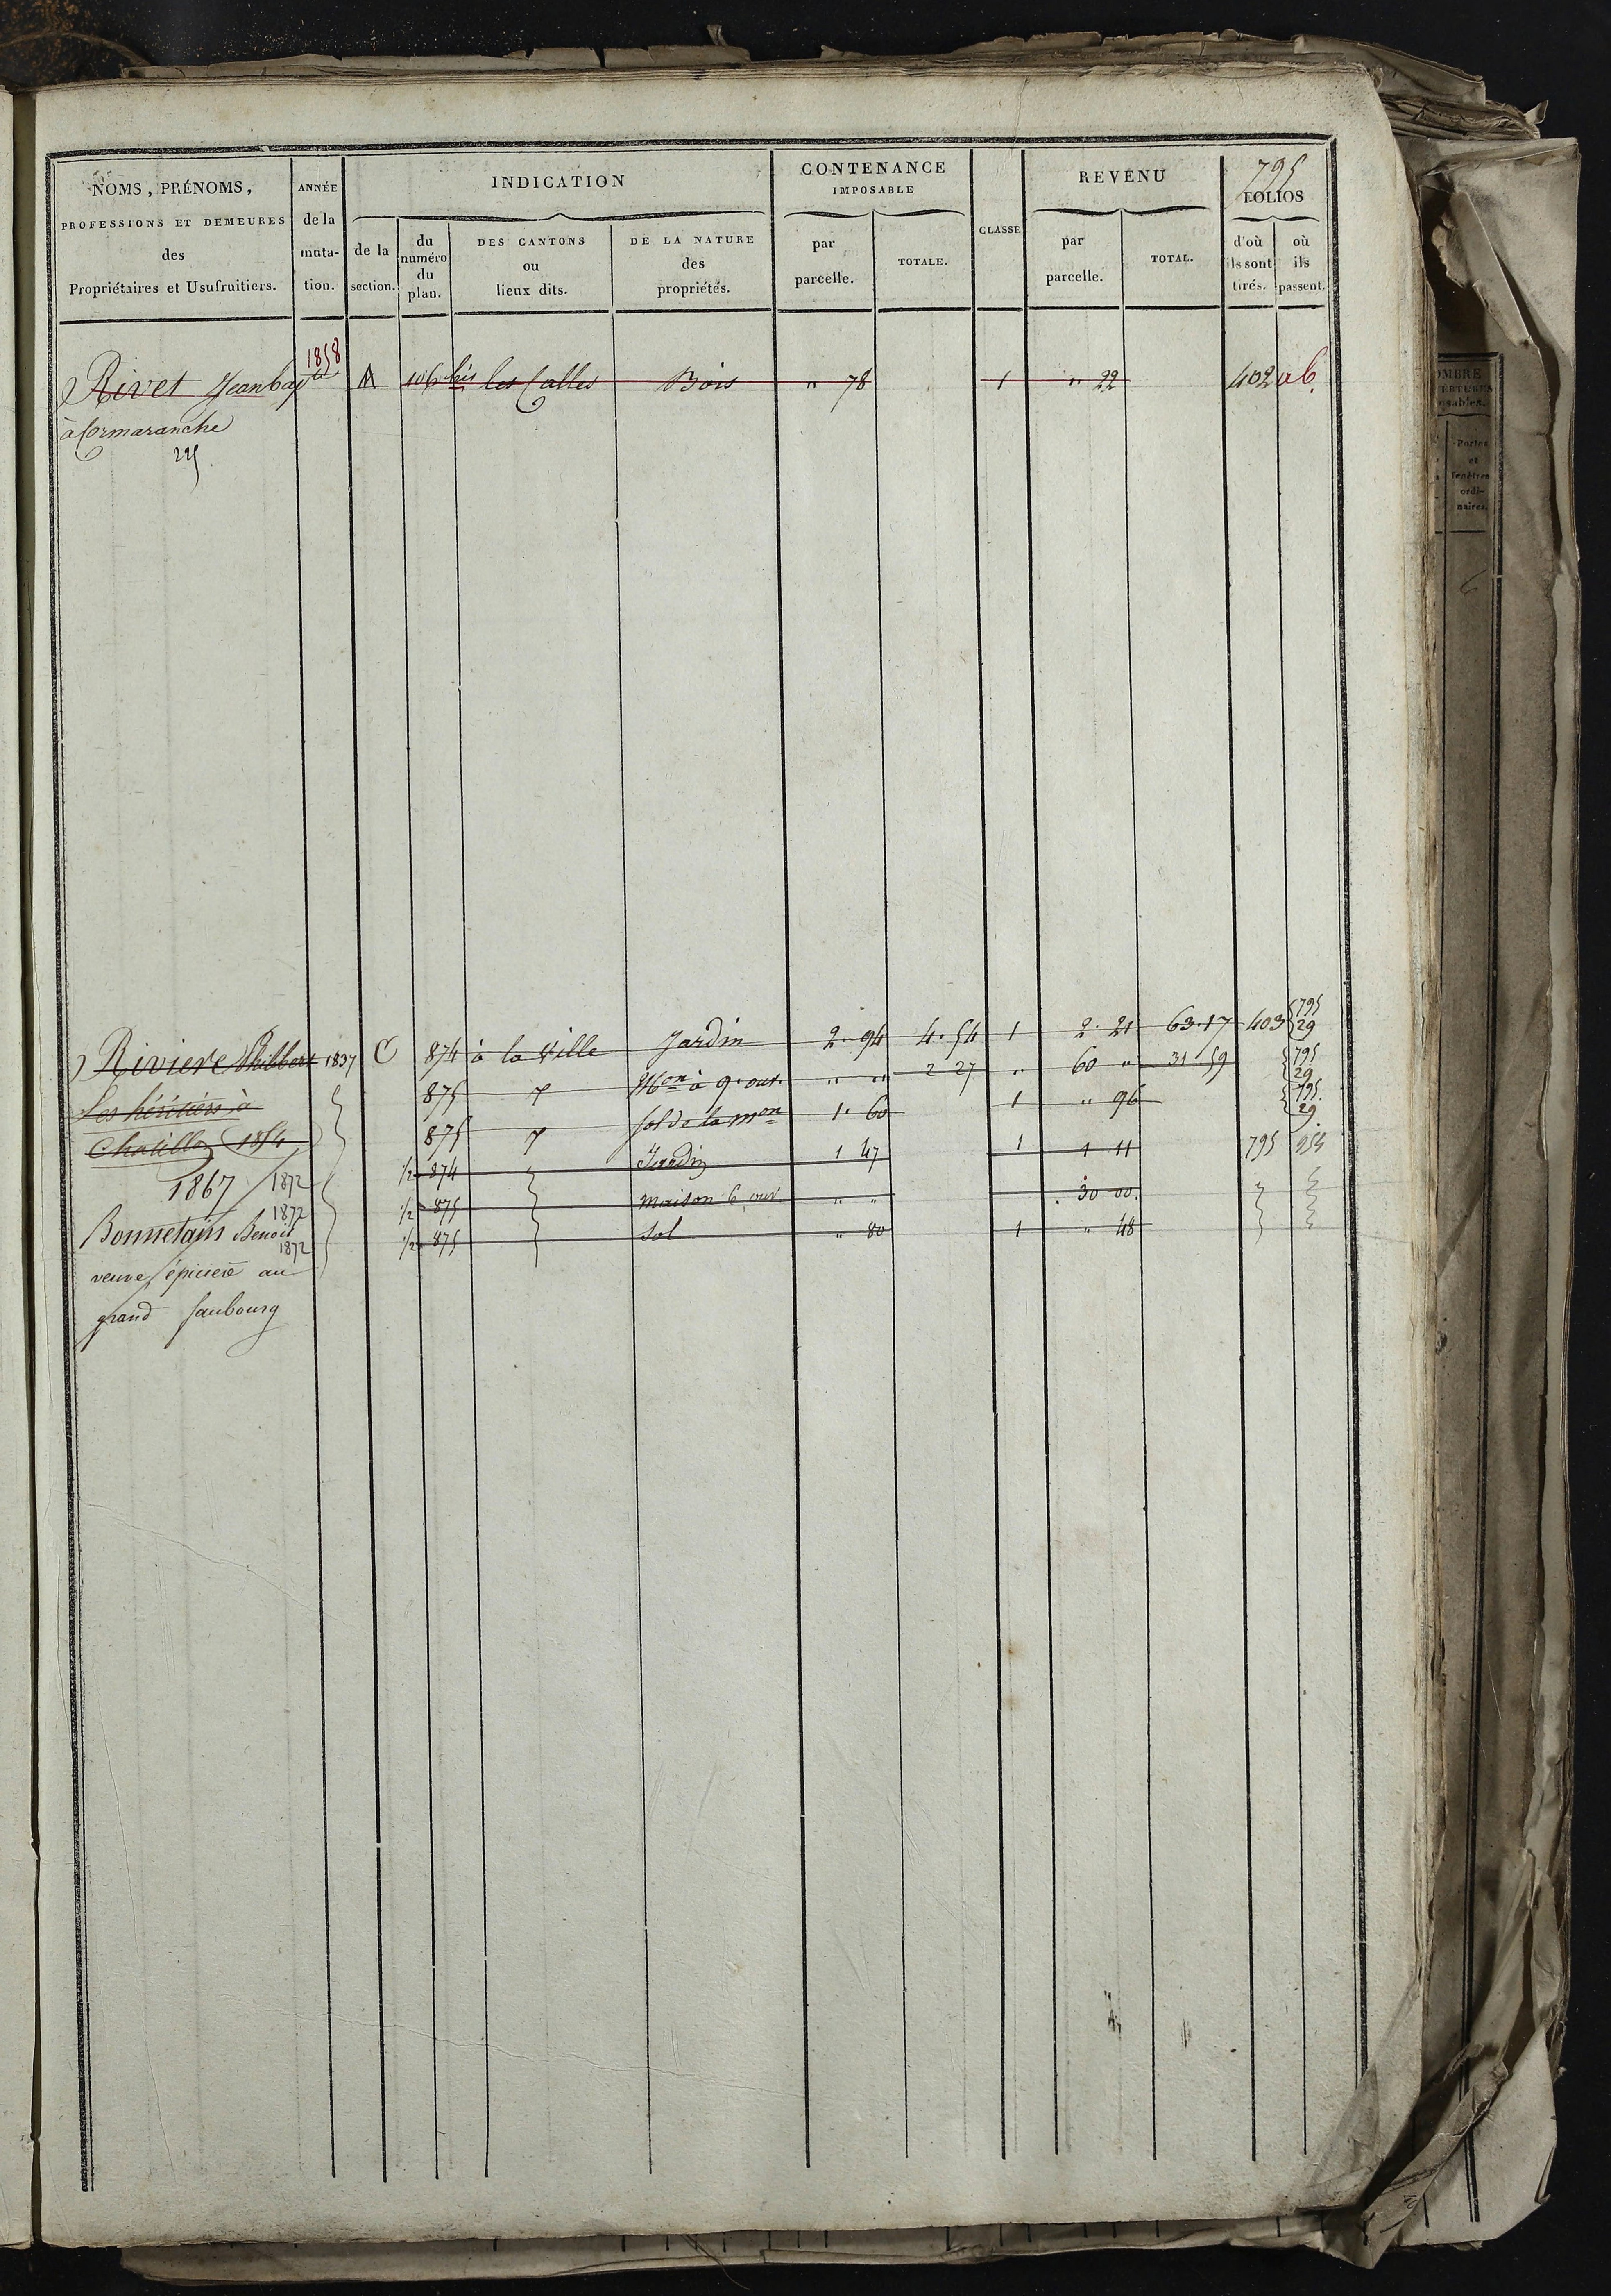 795
NOMS, PRÉNOMS, PROFESSIONS ET DEMEURES des Propriétaires et Usufruitiers.
ANNÉE de la muta-tion.
INDICATION
de la section.
du numéro du plan.
DES CANTONS ou lieux dits.
DE LA NATURE des propriétés.
CONTENANCE IMPOSABLE
par parcelle.
TOTALE.
CLASSE
REVENU
par parcelle.
TOTAL.
FOLIOS
d'où ils sont tirés.
où ils passent.
1858
Rivet Jeanbapte A 106 bis les Calles Bois " 78 1 " 22 402 ab
à Cormaranche
225
Riviere Philibert 1837 C 874 à la Ville Jardin 2. 94 4. 54 1 2. 21 63. 17 403 795 29
875 Mon à 9. ouv. " " 2 27 " 60 " 31 59 795 29
Les héritiers à
875 sol de la mon 1. 60 1 " 96 795 29
Chatillon 1854
1/2 874 Jardin 1 47 1 1 11 795 254
1867 1872
1/2 875 maison 6 ouv " " 30 00.
1872
Bonnetain Benoit
1/2 875 sol " 80 1 " 48
1872
veuve épiciere au
grand faubourg
Portes et fenêtres ordi-naires.